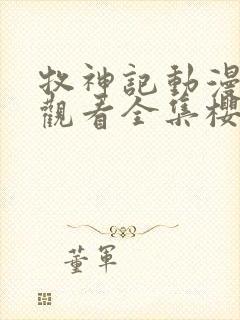 牧神記動漫
觀看全集櫻
董軍